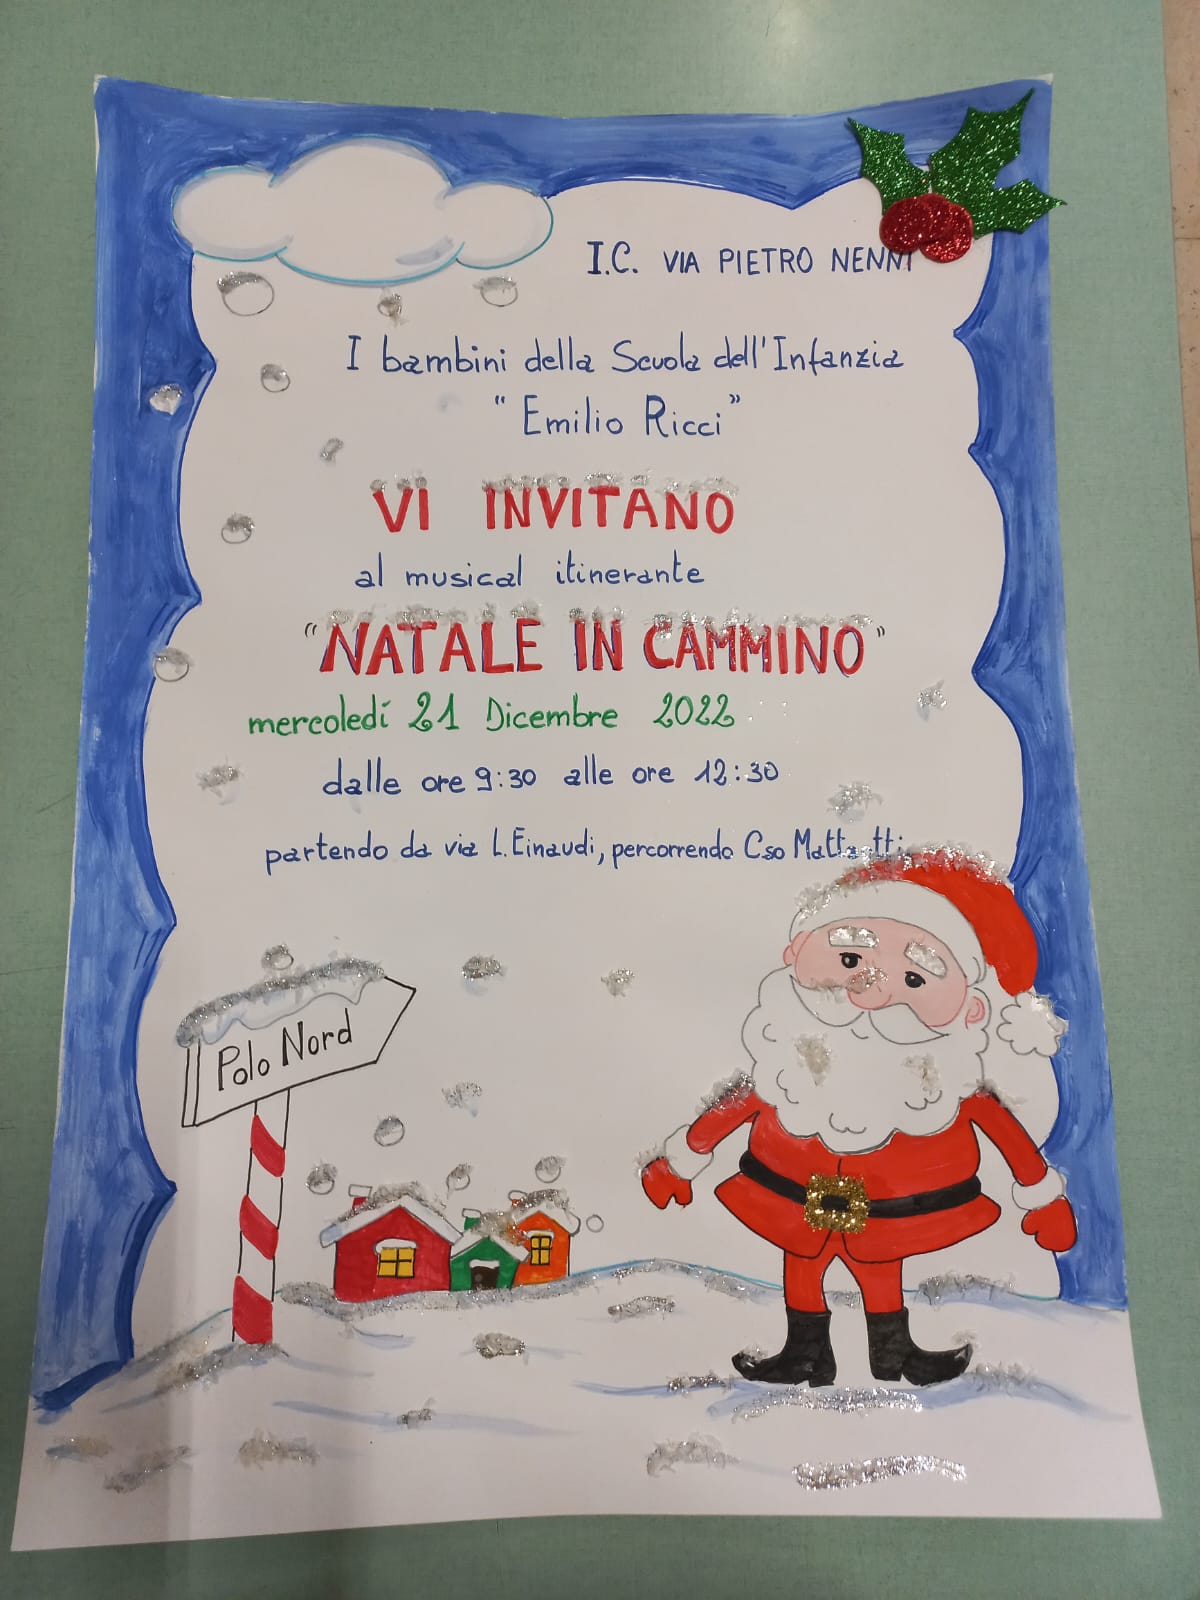 I.C. VIA PIETRO NENNI
I bambini della Scuola dell'Infanzia
"Emilio Ricci"
VI INVITANO
al musical itinerante
"NATALE IN CAMMINO"
mercoledí 21 Dicembre 2022
dalle ore 9:30 alle ore 12:30
partendo da via L. Einaudi, percorrendo Cso Matteotti
Polo Nord